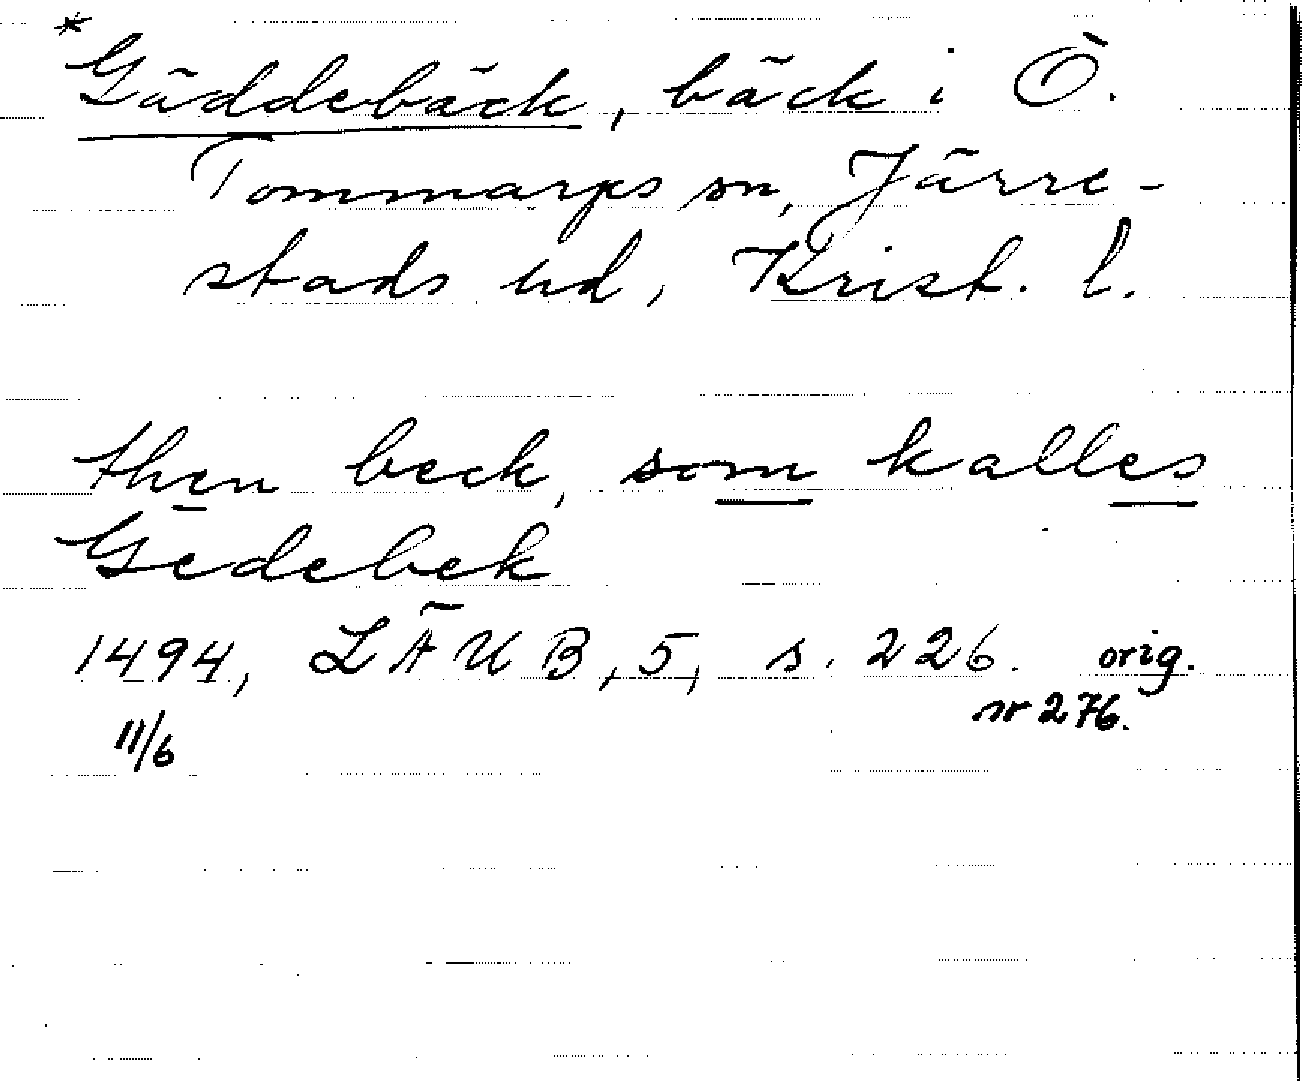 *Gäddebäck, bäck i Ö.
Tommarps sn, Järre-
stads hd, Krist. l.
then beck, som kalles
Gedebek
1494, LÄUB, 5, s. 226. orig.
nr 276.
11/6